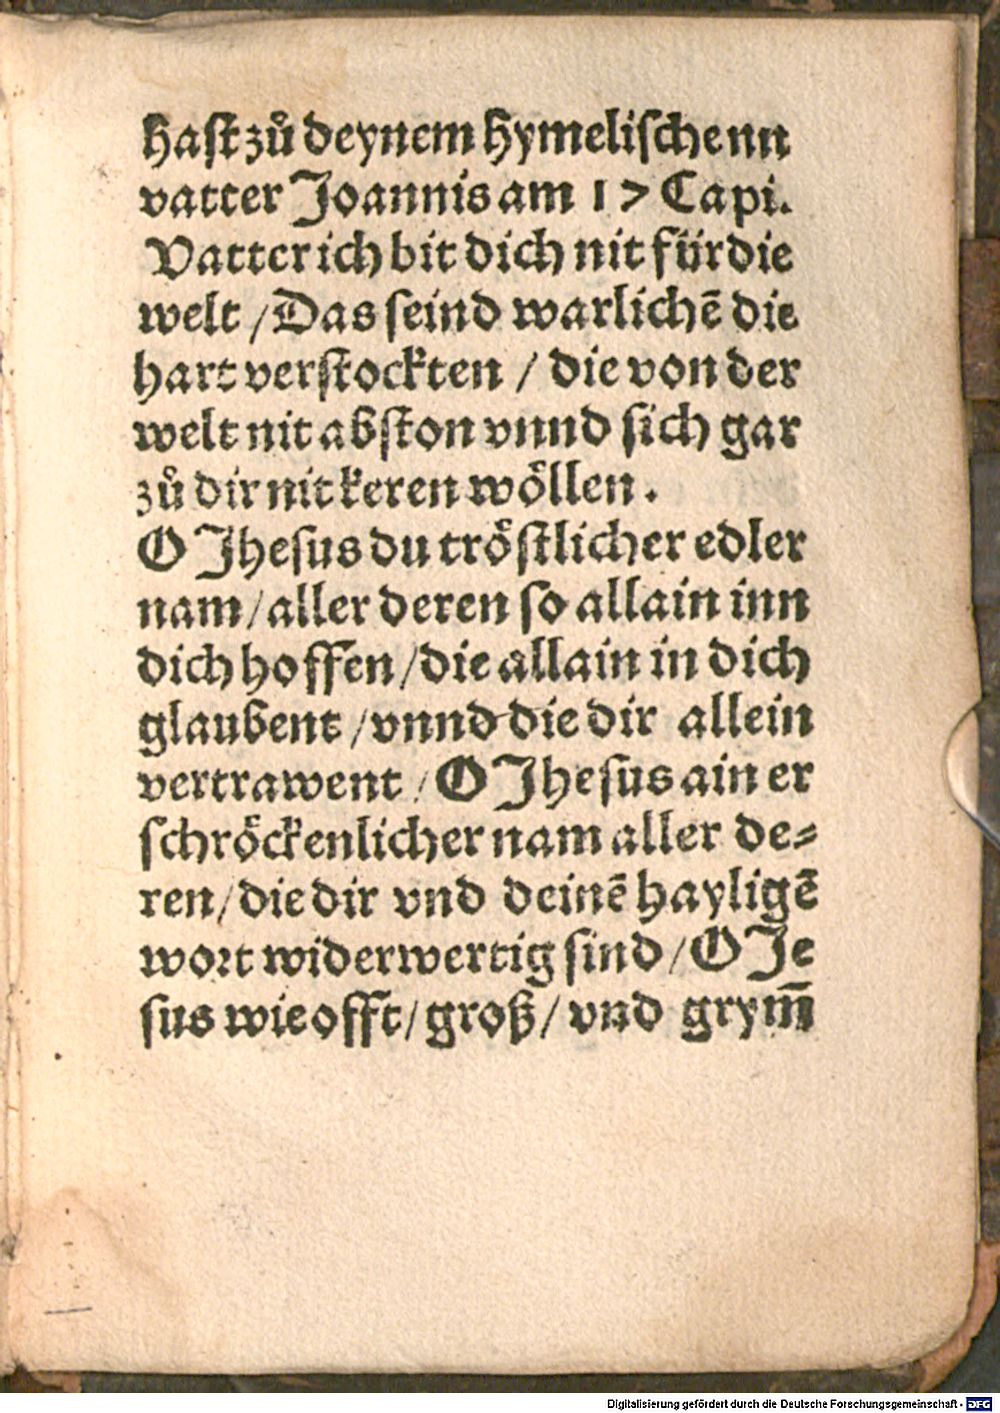 hast zuͦ deynem hymelischenn
vatter Joannis am 17 Capi.
Vatter ich bit dich nit für die
welt / Das seind warlichē die
hart verstockten / die von der
welt nit abston vnnd sich gar
zuͦ dir nit keren woͤllen.
O Jhesus du troͤstlicher edler
nam / aller deren so allain inn
dich hoffen / die allain in dich
glaubent / vnnd die dir allein
vertrawent / O Jhesus ain er
schroͤckenlicher nam aller de=
ren / die dir vnd deinē hayligē
wort widerwertig sind / O Je
sus wie offt / groß / vnd grym̄
Digitalisierung gefördert durch die Deutsche Forschungsgemeinschaft - DFG